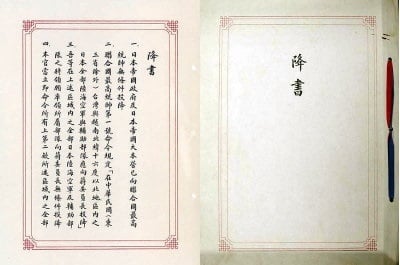 降書
降書
一、日本帝國政府及日本帝國大本營已向聯合國最高
統帥無條件投降
二、聯合國最高統帥第一號命令規定「在中華民國(東
三省除外)台灣與越南北緯十六度以北地區內之
日本全部陸海空軍與輔助部隊應向蔣委員長投降」
三、吾等在上述區域內之全部日本陸海空軍及輔助部
隊之將領願率領所屬部隊向蔣委員長無條件投降
四、本官當立即命令所有上第二款所述區域內之全部